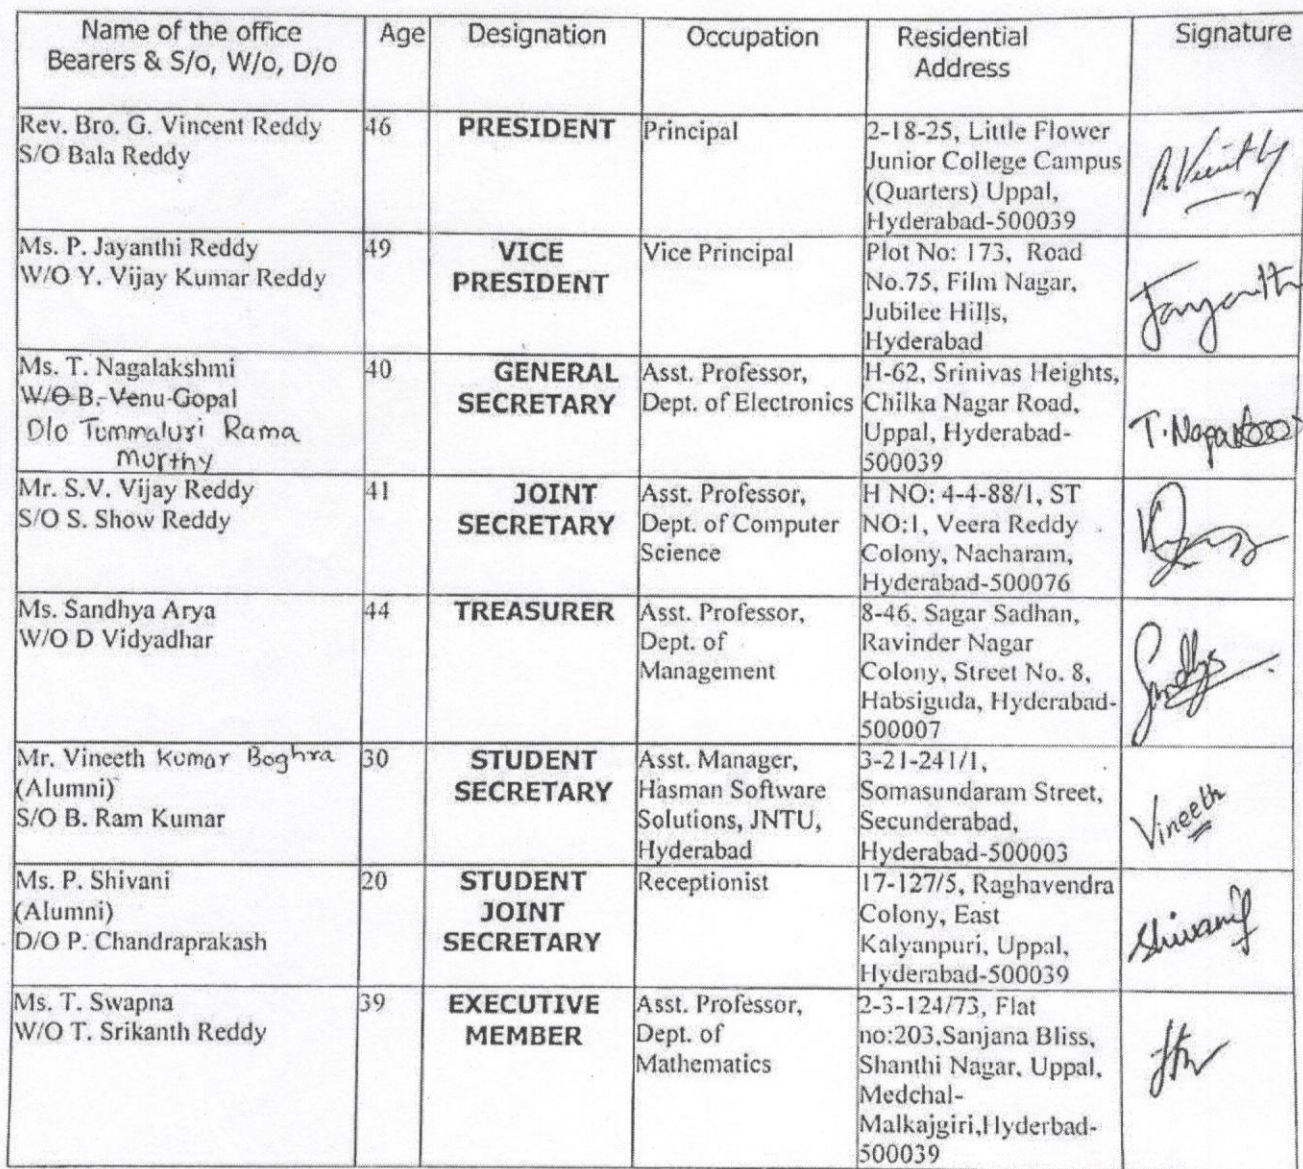 Name of the office
Bearers & S/o, W/o, D/o
Age
Designation
Occupation
Residential
Address
Signature
Rev. Bro. G. Vincent Reddy
S/O Bala Reddy
46
PRESIDENT
Principal
2-18-25, Little Flower
Junior College Campus
(Quarters) Uppal,
Hyderabad-500039
Ms. P. Jayanthi Reddy
W/O Y. Vijay Kumar Reddy
49
VICE
PRESIDENT
Vice Principal
Plot No: 173, Road
No.75, Film Nagar,
Jubilee Hills,
Hyderabad
Jayanthi
Ms. T. Nagalakshmi
W/O B. Venu Gopal
D/o Tummaluri Rama
Murthy
40
GENERAL
SECRETARY
Asst. Professor,
Dept. of Electronics
H-62, Srinivas Heights,
Chilka Nagar Road,
Uppal, Hyderabad-
500039
Mr. S.V. Vijay Reddy
S/O S. Show Reddy
41
JOINT
SECRETARY
Asst. Professor,
Dept. of Computer
Science
H NO: 4-4-88/1, ST
NO:1, Veera Reddy
Colony, Nacharam,
Hyderabad-500076
Ms. Sandhya Arya
W/O D Vidyadhar
44
TREASURER
Asst. Professor,
Dept. of
Management
8-46, Sagar Sadhan,
Ravinder Nagar
Colony, Street No. 8,
Habsiguda, Hyderabad-
500007
Mr. Vineeth Kumar Boghra
(Alumni)
S/O B. Ram Kumar
30
STUDENT
SECRETARY
Asst. Manager,
Hasman Software
Solutions, JNTU,
Hyderabad
3-21-241/1,
Somasundaram Street,
Secunderabad,
Hyderabad-500003
Vineeth
Ms. P. Shivani
(Alumni)
D/O P. Chandraprakash
20
STUDENT
JOINT
SECRETARY
Receptionist
17-127/5, Raghavendra
Colony, East
Kalyanpuri, Uppal,
Hyderabad-500039
Shivani
Ms. T. Swapna
W/O T. Srikanth Reddy
39
EXECUTIVE
MEMBER
Asst. Professor,
Dept. of
Mathematics
2-3-124/73, Flat
no:203,Sanjana Bliss,
Shanthi Nagar, Uppal,
Medchal-
Malkajgiri,Hyderbad-
500039